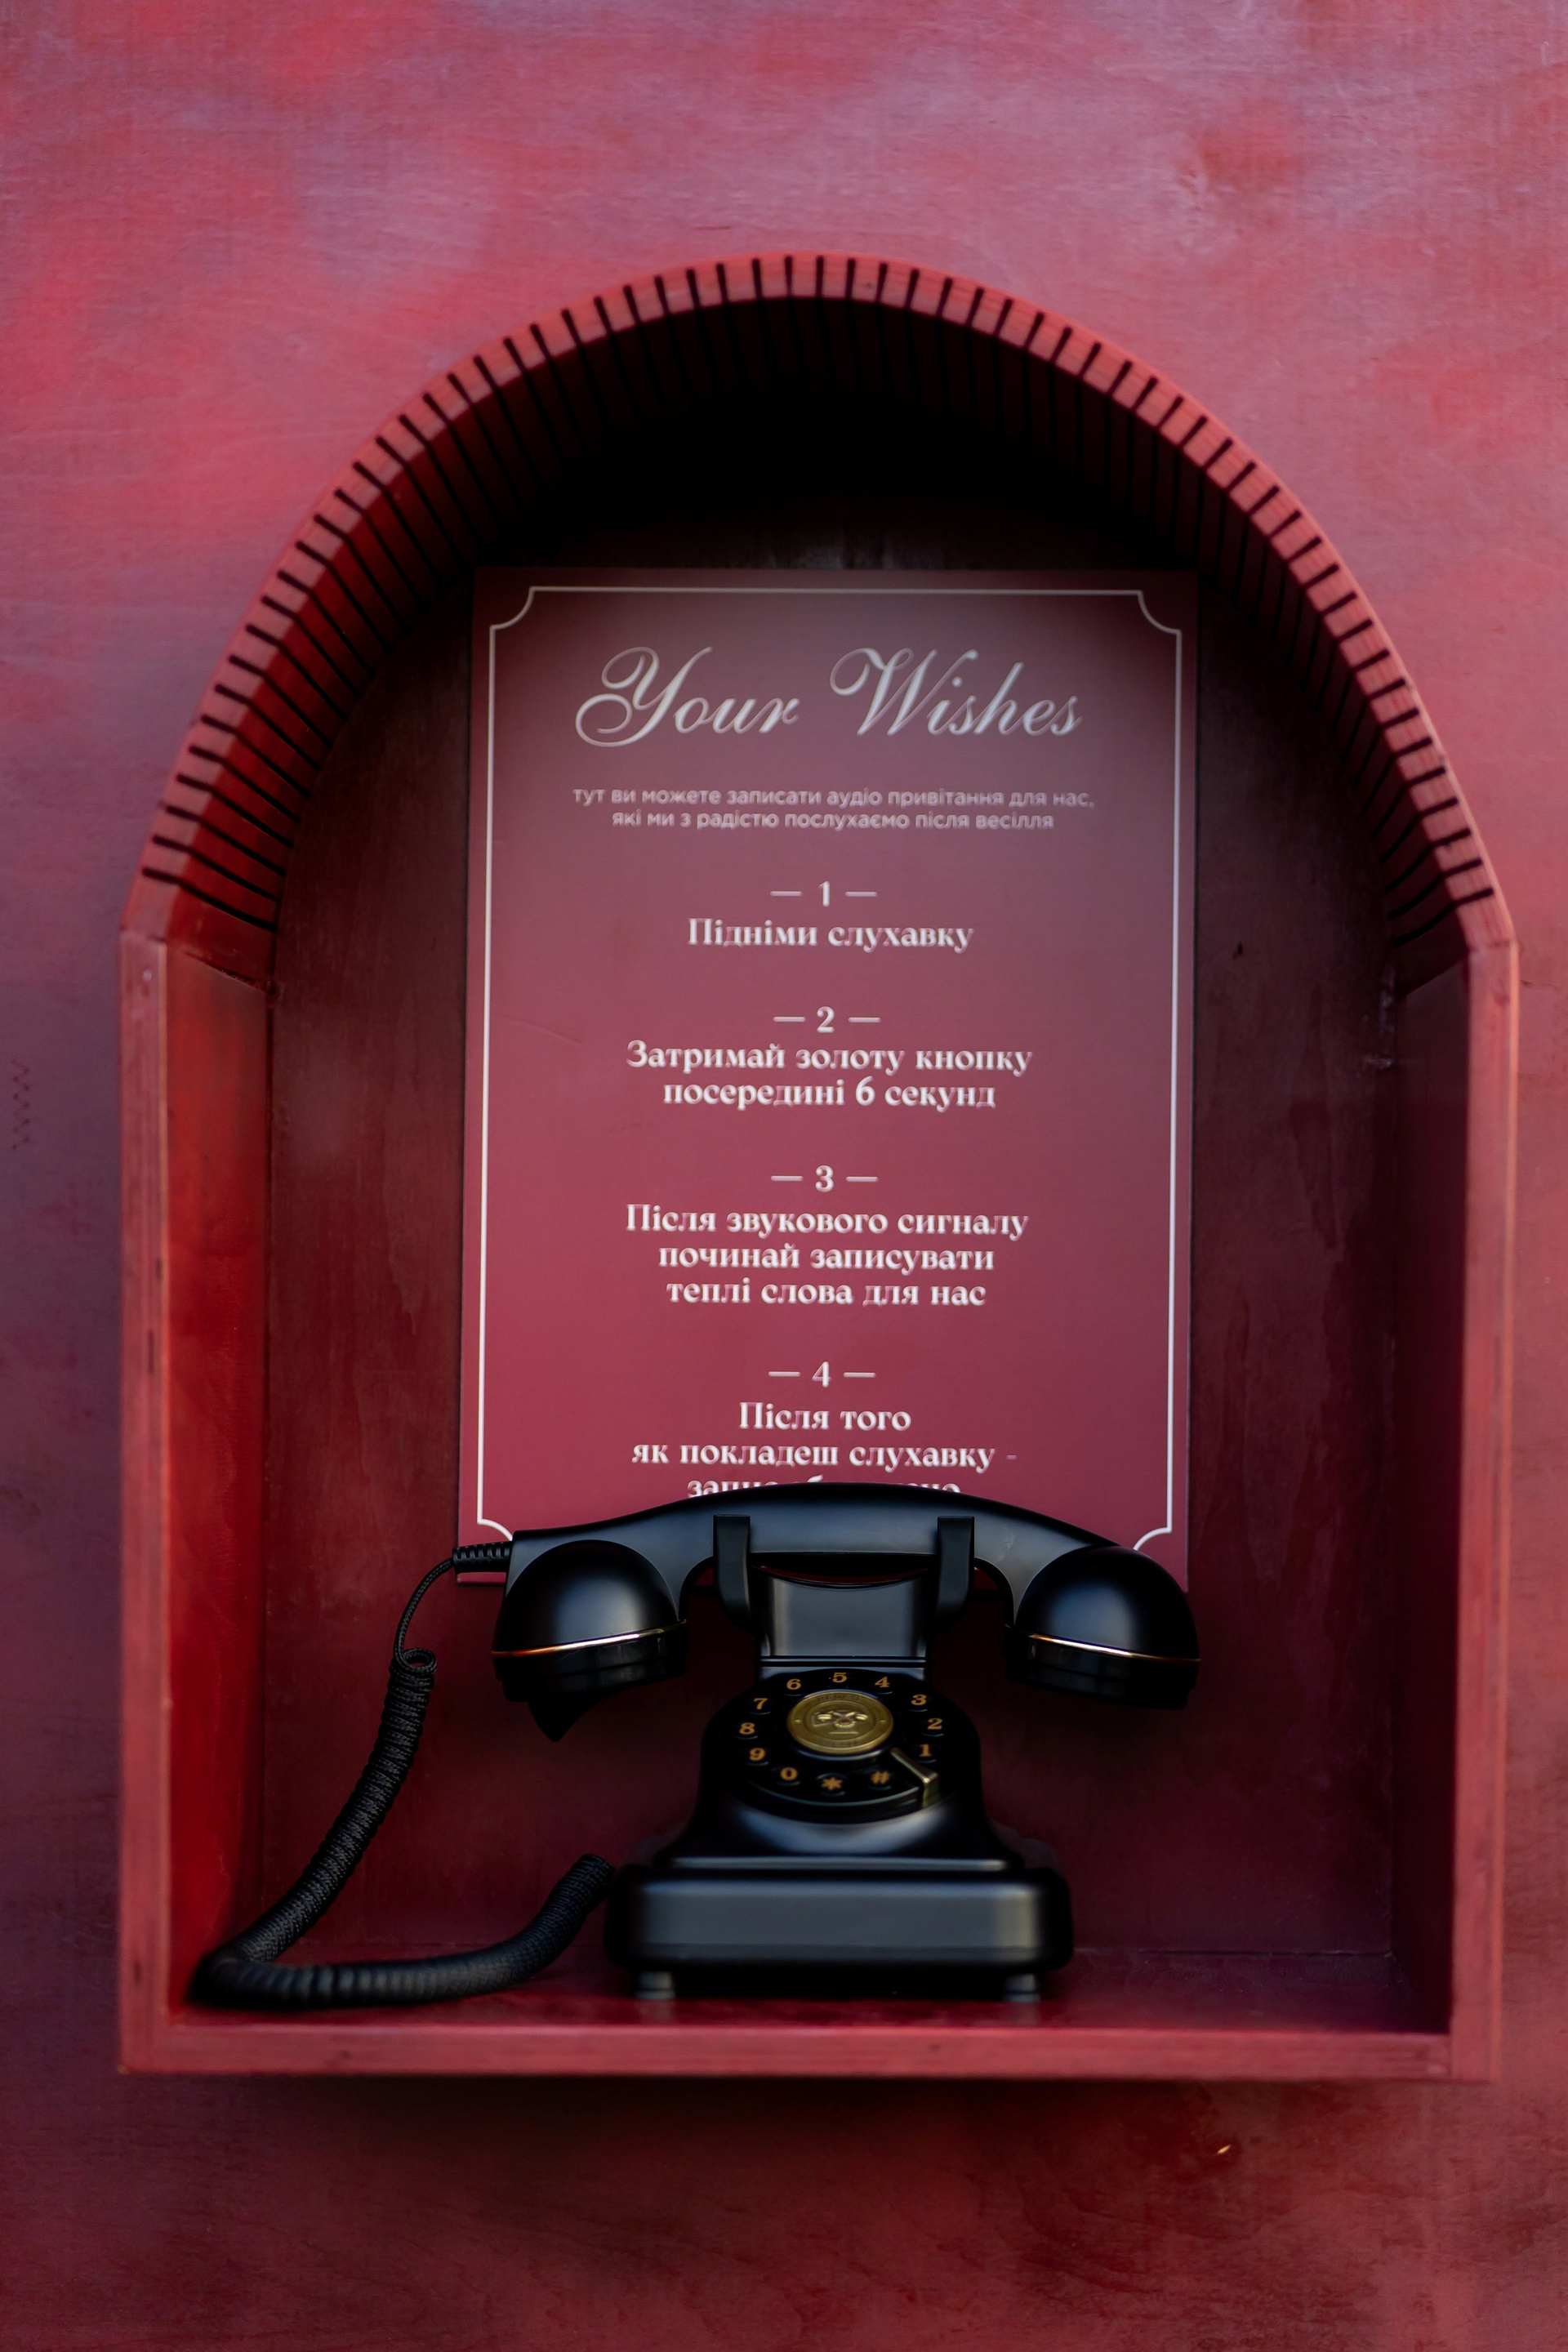 Your Wishes
тут ви можете записати аудіо привітання для нас,
які ми з радістю послухаємо після весілля
— 1 —
Підніми слухавку
— 2 —
Затримай золоту кнопку
посередині 6 секунд
— 3 —
Після звукового сигналу
починай записувати
теплі слова для нас
— 4 —
Після того
як покладеш слухавку -
5
6 4
7 3
8 2
9 1
0 * #